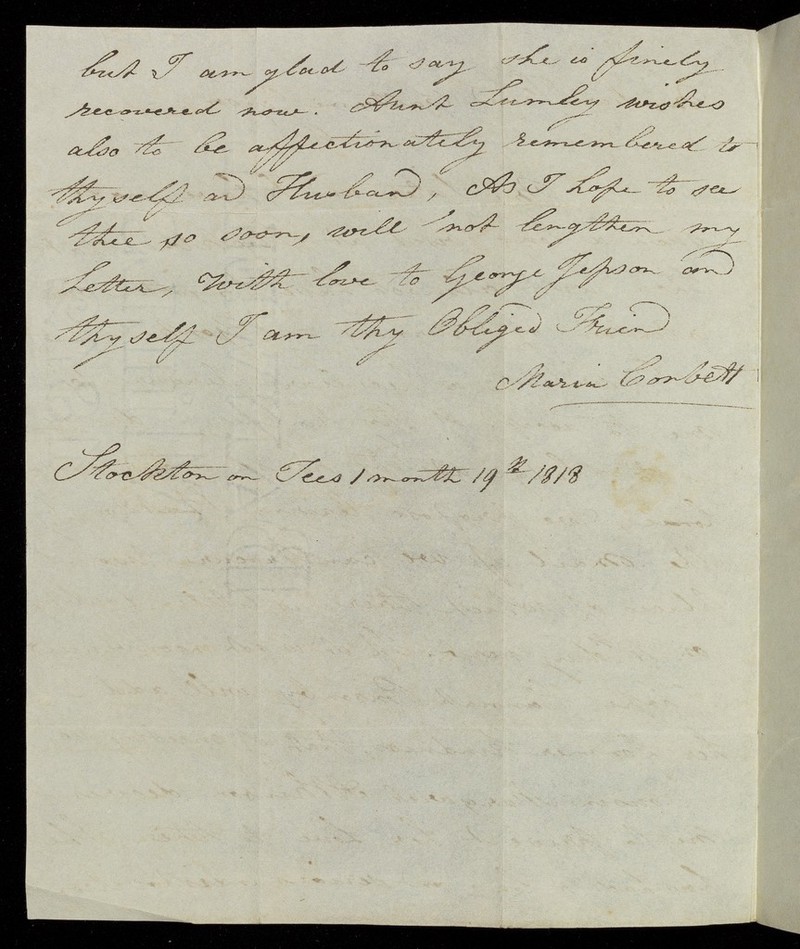 but I am glad to say she is finely
recovered now. Aunt Lumley wishes
also to be affectionately remembered to
thyself and Husband, As I hope to see
thee so soon, will not lengthen my
Letter, With love to George Jepson and
thyself I am thy Obliged Friend
Maria Corbett
Stockton on Tees 1 month 19th 1818